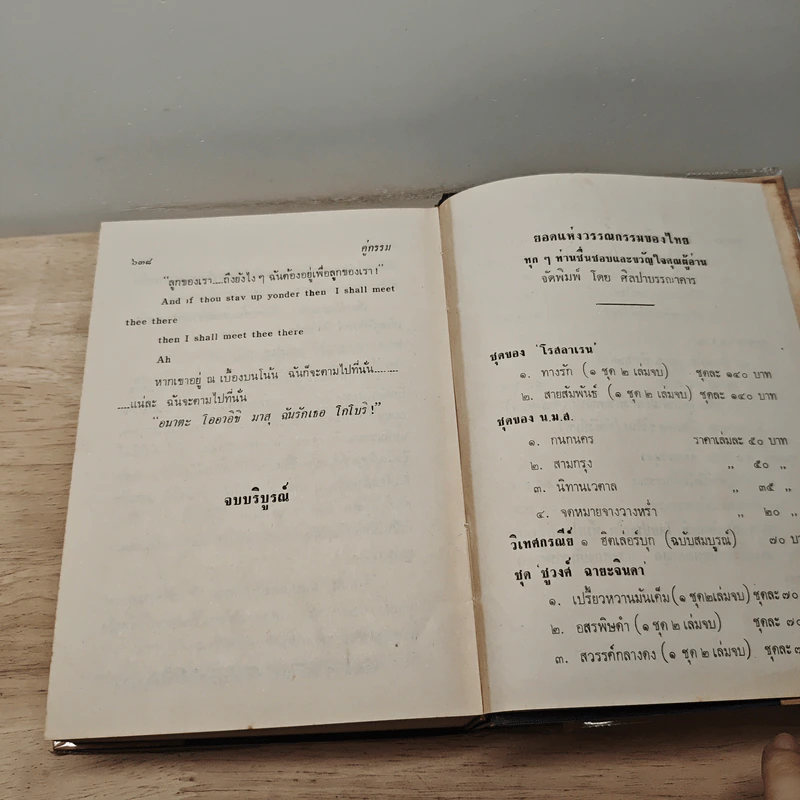 ๖๓๘ คู่กรรม
"ลูกของเรา....ถึงยังไง ๆ ฉันต้องอยู่เพื่อลูกของเรา !"
And if thou stav up yonder then I shall meet
thee there
then I shall meet thee there
Ah
หากเขาอยู่ ณ เบื้องบนโน้น ฉันก็จะตามไปที่นั่น........
....แน่ละ ฉันจะตามไปที่นั่น
"อนาตะ โอยาอิชิ มาสุ ฉันรักเธอ โกโบริ !"
จบบริบูรณ์
ยอดแห่งวรรณกรรมของไทย
ทุก ๆ ท่านชื่นชอบและขวัญใจคุณผู้อ่าน
จัดพิมพ์ โดย ศิลปาบรรณาคาร
ชุดของ 'โรสลาเรน'
๑. ทางรัก (๑ ชุด ๒ เล่มจบ) ชุดละ ๑๔๐ บาท
๒. สายสัมพันธ์ (๑ ชุด ๒ เล่มจบ) ชุดละ ๑๔๐ บาท
ชุดของ น.ม.ส.
๑. กนกนคร ราคาเล่มละ ๕๐ บาท
๒. สามกรุง ,, ๕๐ ,,
๓. นิทานเวตาล ,, ๓๕ ,,
๔. จดหมายจางวางหร่ำ ,, ๒๐ ,,
วิเทศกรณีย์ ๑ ฮิตเล่อร์บุก (ฉบับสมบูรณ์) ๗๐
ชุด 'ชูวงศ์ ฉายะจินดา'
๑. เปรี้ยวหวานมันเค็ม (๑ ชุด๒เล่มจบ) ชุดละ ๗๐
๒. อสรพิษดำ (๑ ชุด ๒ เล่มจบ) ชุดละ ๗๐
๓. สวรรค์กลางดง (๑ ชุด ๒ เล่มจบ) ชุดละ